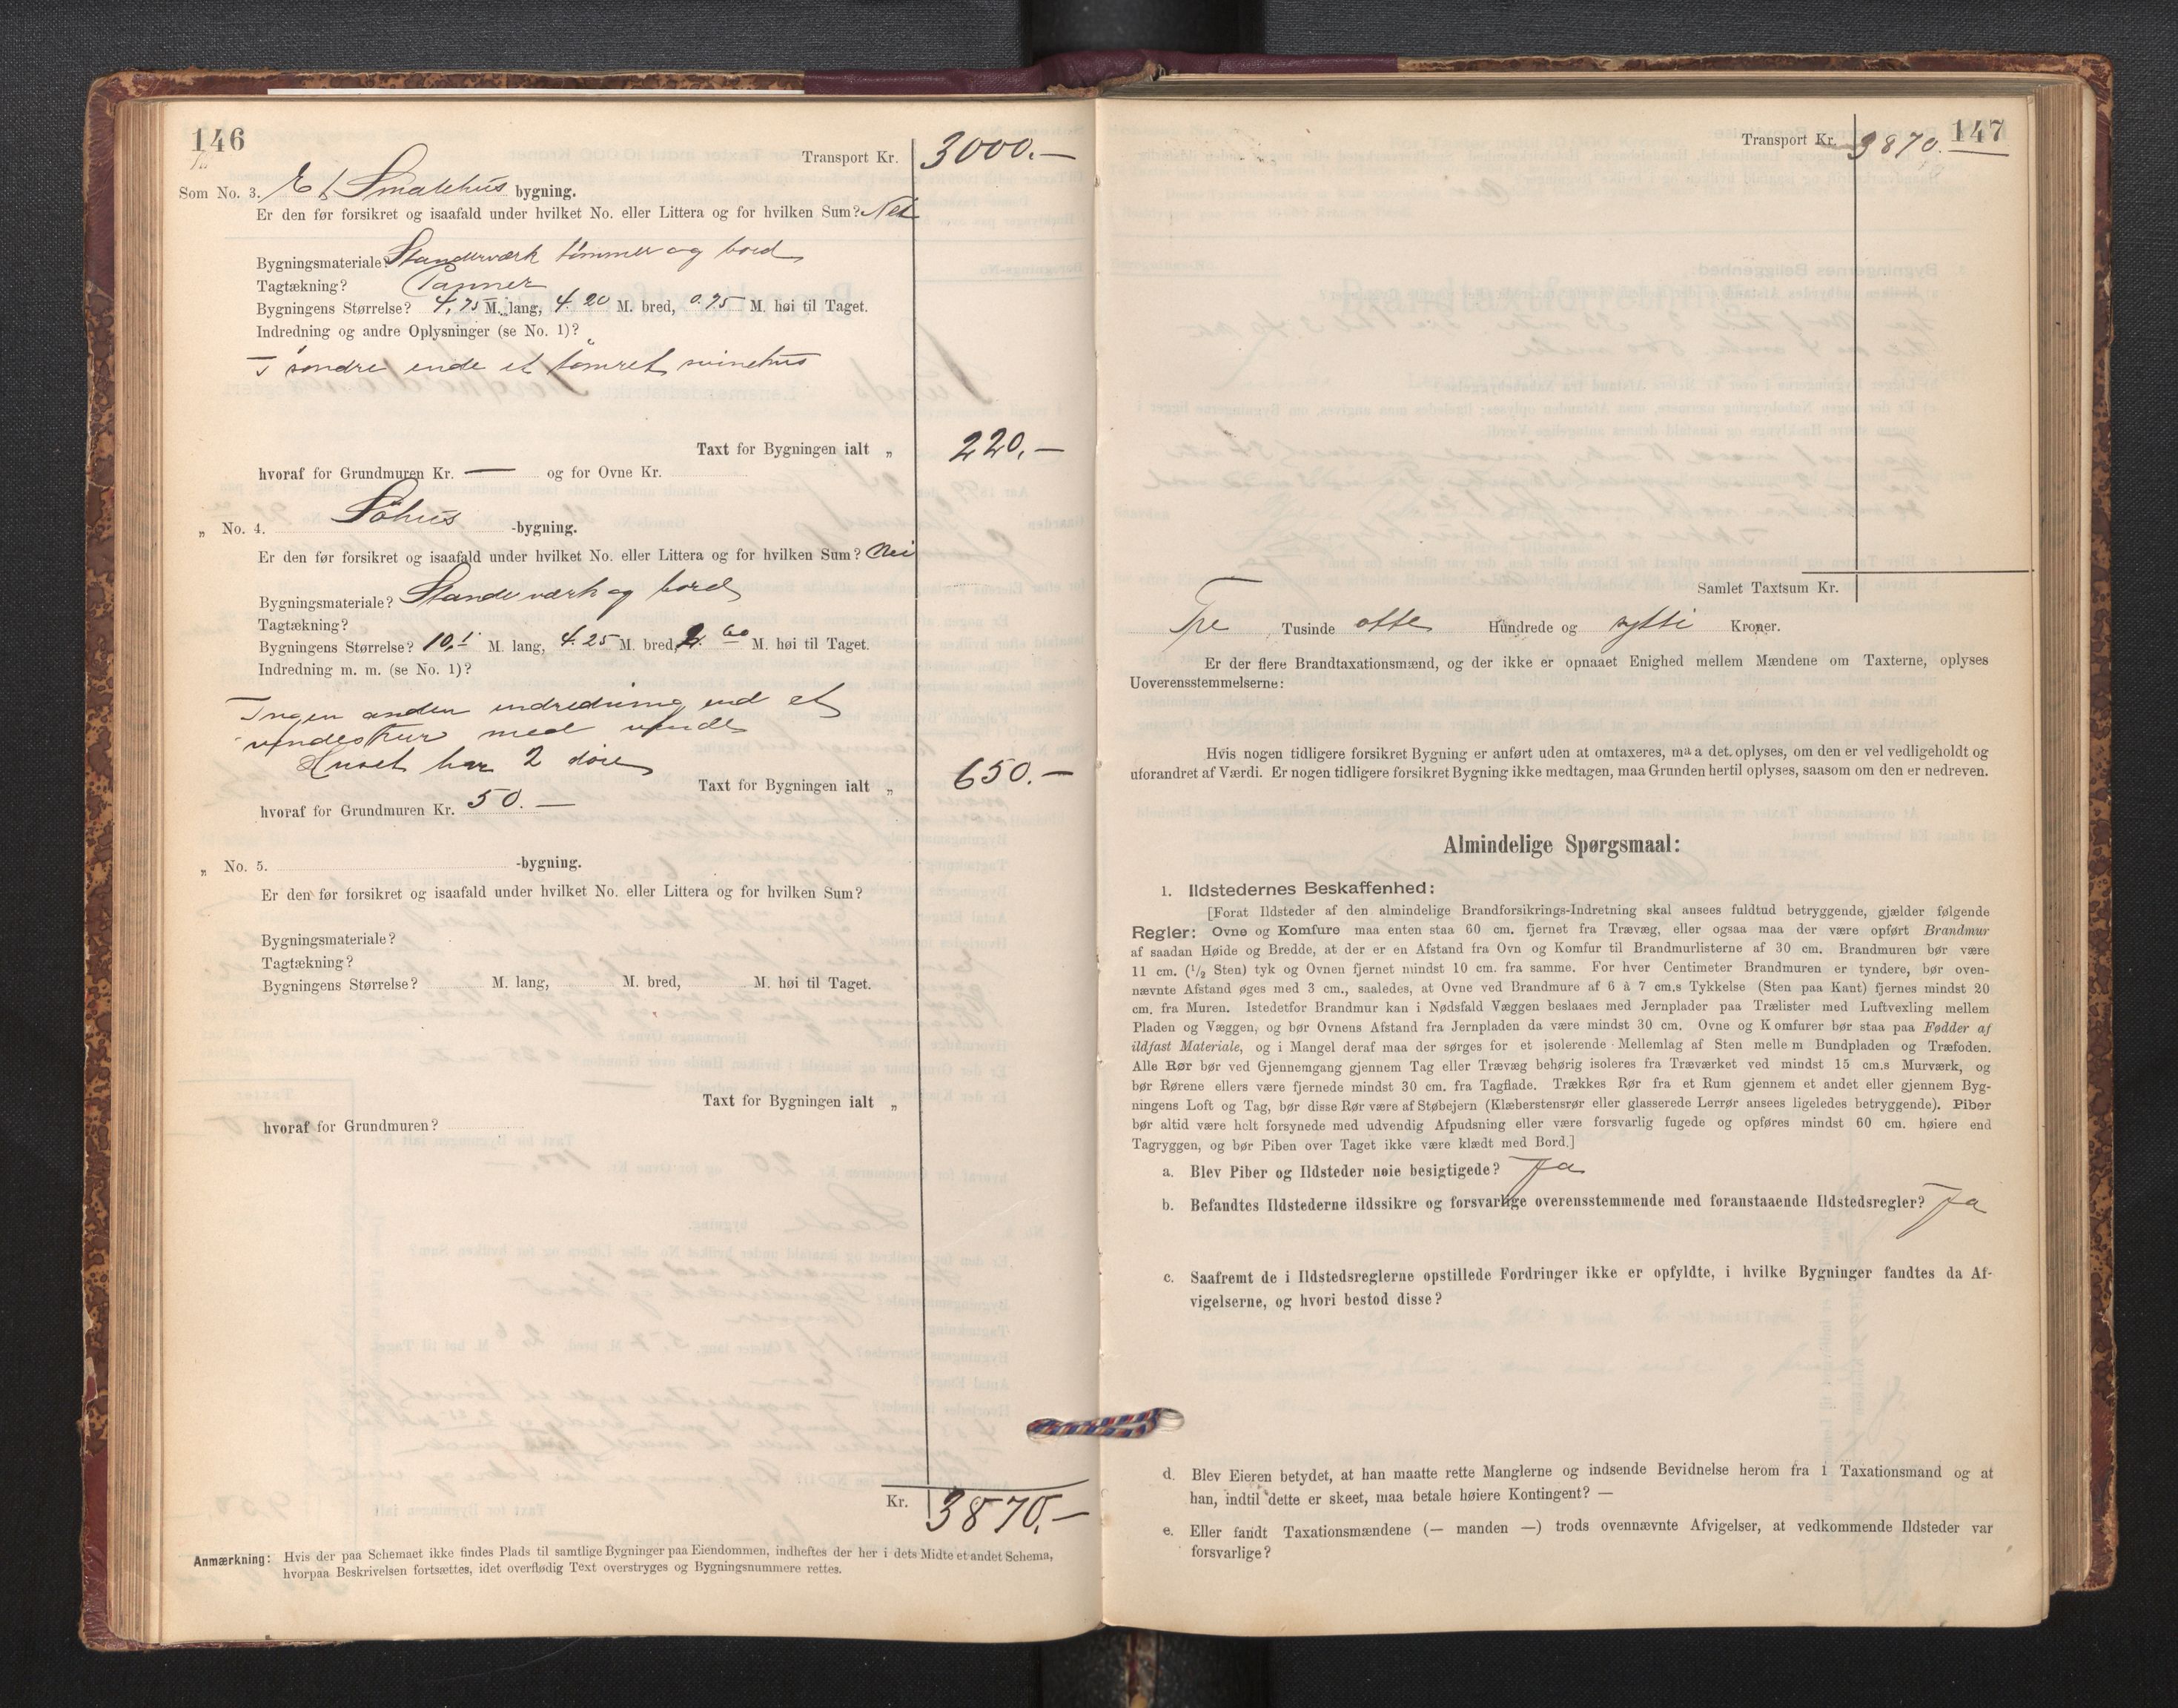 146
Transport Kr. 3000.—
Som No. 3. Et Smalehus bygning.
Er den før forsikret og isaafald under hvilket No. eller Littera og for hvilken Sum? Nei
Bygningsmateriale? Standerværk tømmer og bord
Tagtækning? Panner
Bygningens Størrelse? 4,75 M. lang, 4.20 M. bred, 0.95 M. høi til Taget.
Indredning og andre Oplysninger (se No. 1)?
I søndre ende et tømret svinehus
Taxt for Bygningen ialt „ 220,—
hvoraf for Grundmuren Kr. — og for Ovne Kr.
„ No. 4. Söhus -bygning.
Er den før forsikret og isaafald under hvilket No. eller Littera og for hvilken Sum? Nei
Bygningsmateriale? Standerværk og bord
Tagtækning?
Bygningens Størrelse? 10,5 M. lang, 4.25 M. bred, 2.60 M. høi til Taget.
Indredning m. m. (se No. 1)?
Ingen anden indredning end et
med
Huset har 2 döre
Taxt for Bygningen ialt „ 650.—
hvoraf for Grundmuren Kr. 50.—
„ No. 5. -bygning.
Er den før forsikret og isaafald under hvilket No. eller Littera og for hvilken Sum?
Bygningsmateriale?
Tagtækning?
Bygningens Størrelse? M. lang, M. bred, M. høi til Taget.
Taxt for Bygningen ialt „
hvoraf for Grundmuren?
Kr. 3870,—
Anmærkning: Hvis der paa Schemaet ikke findes Plads til samtlige Bygninger paa Eiendommen, indheftes der her i dets Midte et andet Schema,
hvorpaa Beskrivelsen fortsættes, idet overflødig Text overstryges og Bygningsnummere rettes.
147
Transport Kr. 3870.
Samlet Taxtsum Kr.
Tre Tusinde otte Hundrede og sytti Kroner.
Er der flere Brandtaxationsmænd, og der ikke er opnaaet Enighed mellem Mændene om Taxterne, oplyses
Uoverensstemmelserne:
Hvis nogen tidligere forsikret Bygning er anført uden at omtaxeres, maa det oplyses, om den er vel vedligeholdt og
uforandret af Værdi. Er nogen tidligere forsikret Bygning ikke medtagen, maa Grunden hertil oplyses, saasom om den er nedreven.
Almindelige Spørgsmaal:
1. Ildstedernes Beskaffenhed:
[Forat Ildsteder af den almindelige Brandforsikrings-Indretning skal ansees fuldtud betryggende, gjælder følgende
Regler: Ovne og Komfure maa enten staa 60 cm. fjernet fra Trævæg, eller ogsaa maa der være opført Brandmur
af saadan Høide og Bredde, at der er en Afstand fra Ovn og Komfur til Brandmurlisterne af 30 cm. Brandmuren bør være
11 cm. (1/2 Sten) tyk og Ovnen fjernet mindst 10 cm. fra samme. For hver Centimeter Brandmuren er tyndere, bør oven-
nævnte Afstand øges med 3 cm., saaledes, at Ovne ved Brandmure af 6 à 7 cm.s Tykkelse (Sten paa Kant) fjernes mindst 20
cm. fra Muren. Istedetfor Brandmur kan i Nødsfald Væggen beslaaes med Jernplader paa Trælister med Luftvexling mellem
Pladen og Væggen, og bør Ovnens Afstand fra Jernpladen da være mindst 30 cm. Ovne og Komfurer bør staa paa Fødder af
ildfast Materiale, og i Mangel deraf maa der sørges for et isolerende Mellemlag af Sten mellem Bundpladen og Træfoden.
Alle Rør bør ved Gjennemgang gjennem Tag eller Trævæg behørig isoleres fra Træværket ved mindst 15 cm.s Murværk, og
bør Rørene ellers være fjernede mindst 30 cm. fra Tagflade. Trækkes Rør fra et Rum gjennem et andet eller gjennem Byg-
ningens Loft og Tag, bør disse Rør være af Støbejern (Klæberstensrør eller glasserede Lerrør ansees ligeledes betryggende). Piber
bør altid være helt forsynede med udvendig Afpudsning eller være forsvarlig fugede og opføres mindst 60 cm. høiere end
Tagryggen, og bør Piben over Taget ikke være klædt med Bord.]
a. Blev Piber og Ildsteder nøie besigtigede? Ja
b. Befandtes Ildstederne ildssikre og forsvarlige overensstemmende med foranstaaende Ildstedsregler? Ja
c. Saafremt de i Ildstedsreglerne opstillede Fordringer ikke er opfyldte, i hvilke Bygninger fandtes da Af-
vigelserne, og hvori bestod disse?
d. Blev Eieren betydet, at han maatte rette Manglerne og indsende Bevidnelse herom fra 1 Taxationsmand og at
han, indtil dette er skeet, maa betale høiere Kontingent? —
e. Eller fandt Taxationsmændene (— manden —) trods ovennævnte Afvigelser, at vedkommende Ildsteder var
forsvarlige?